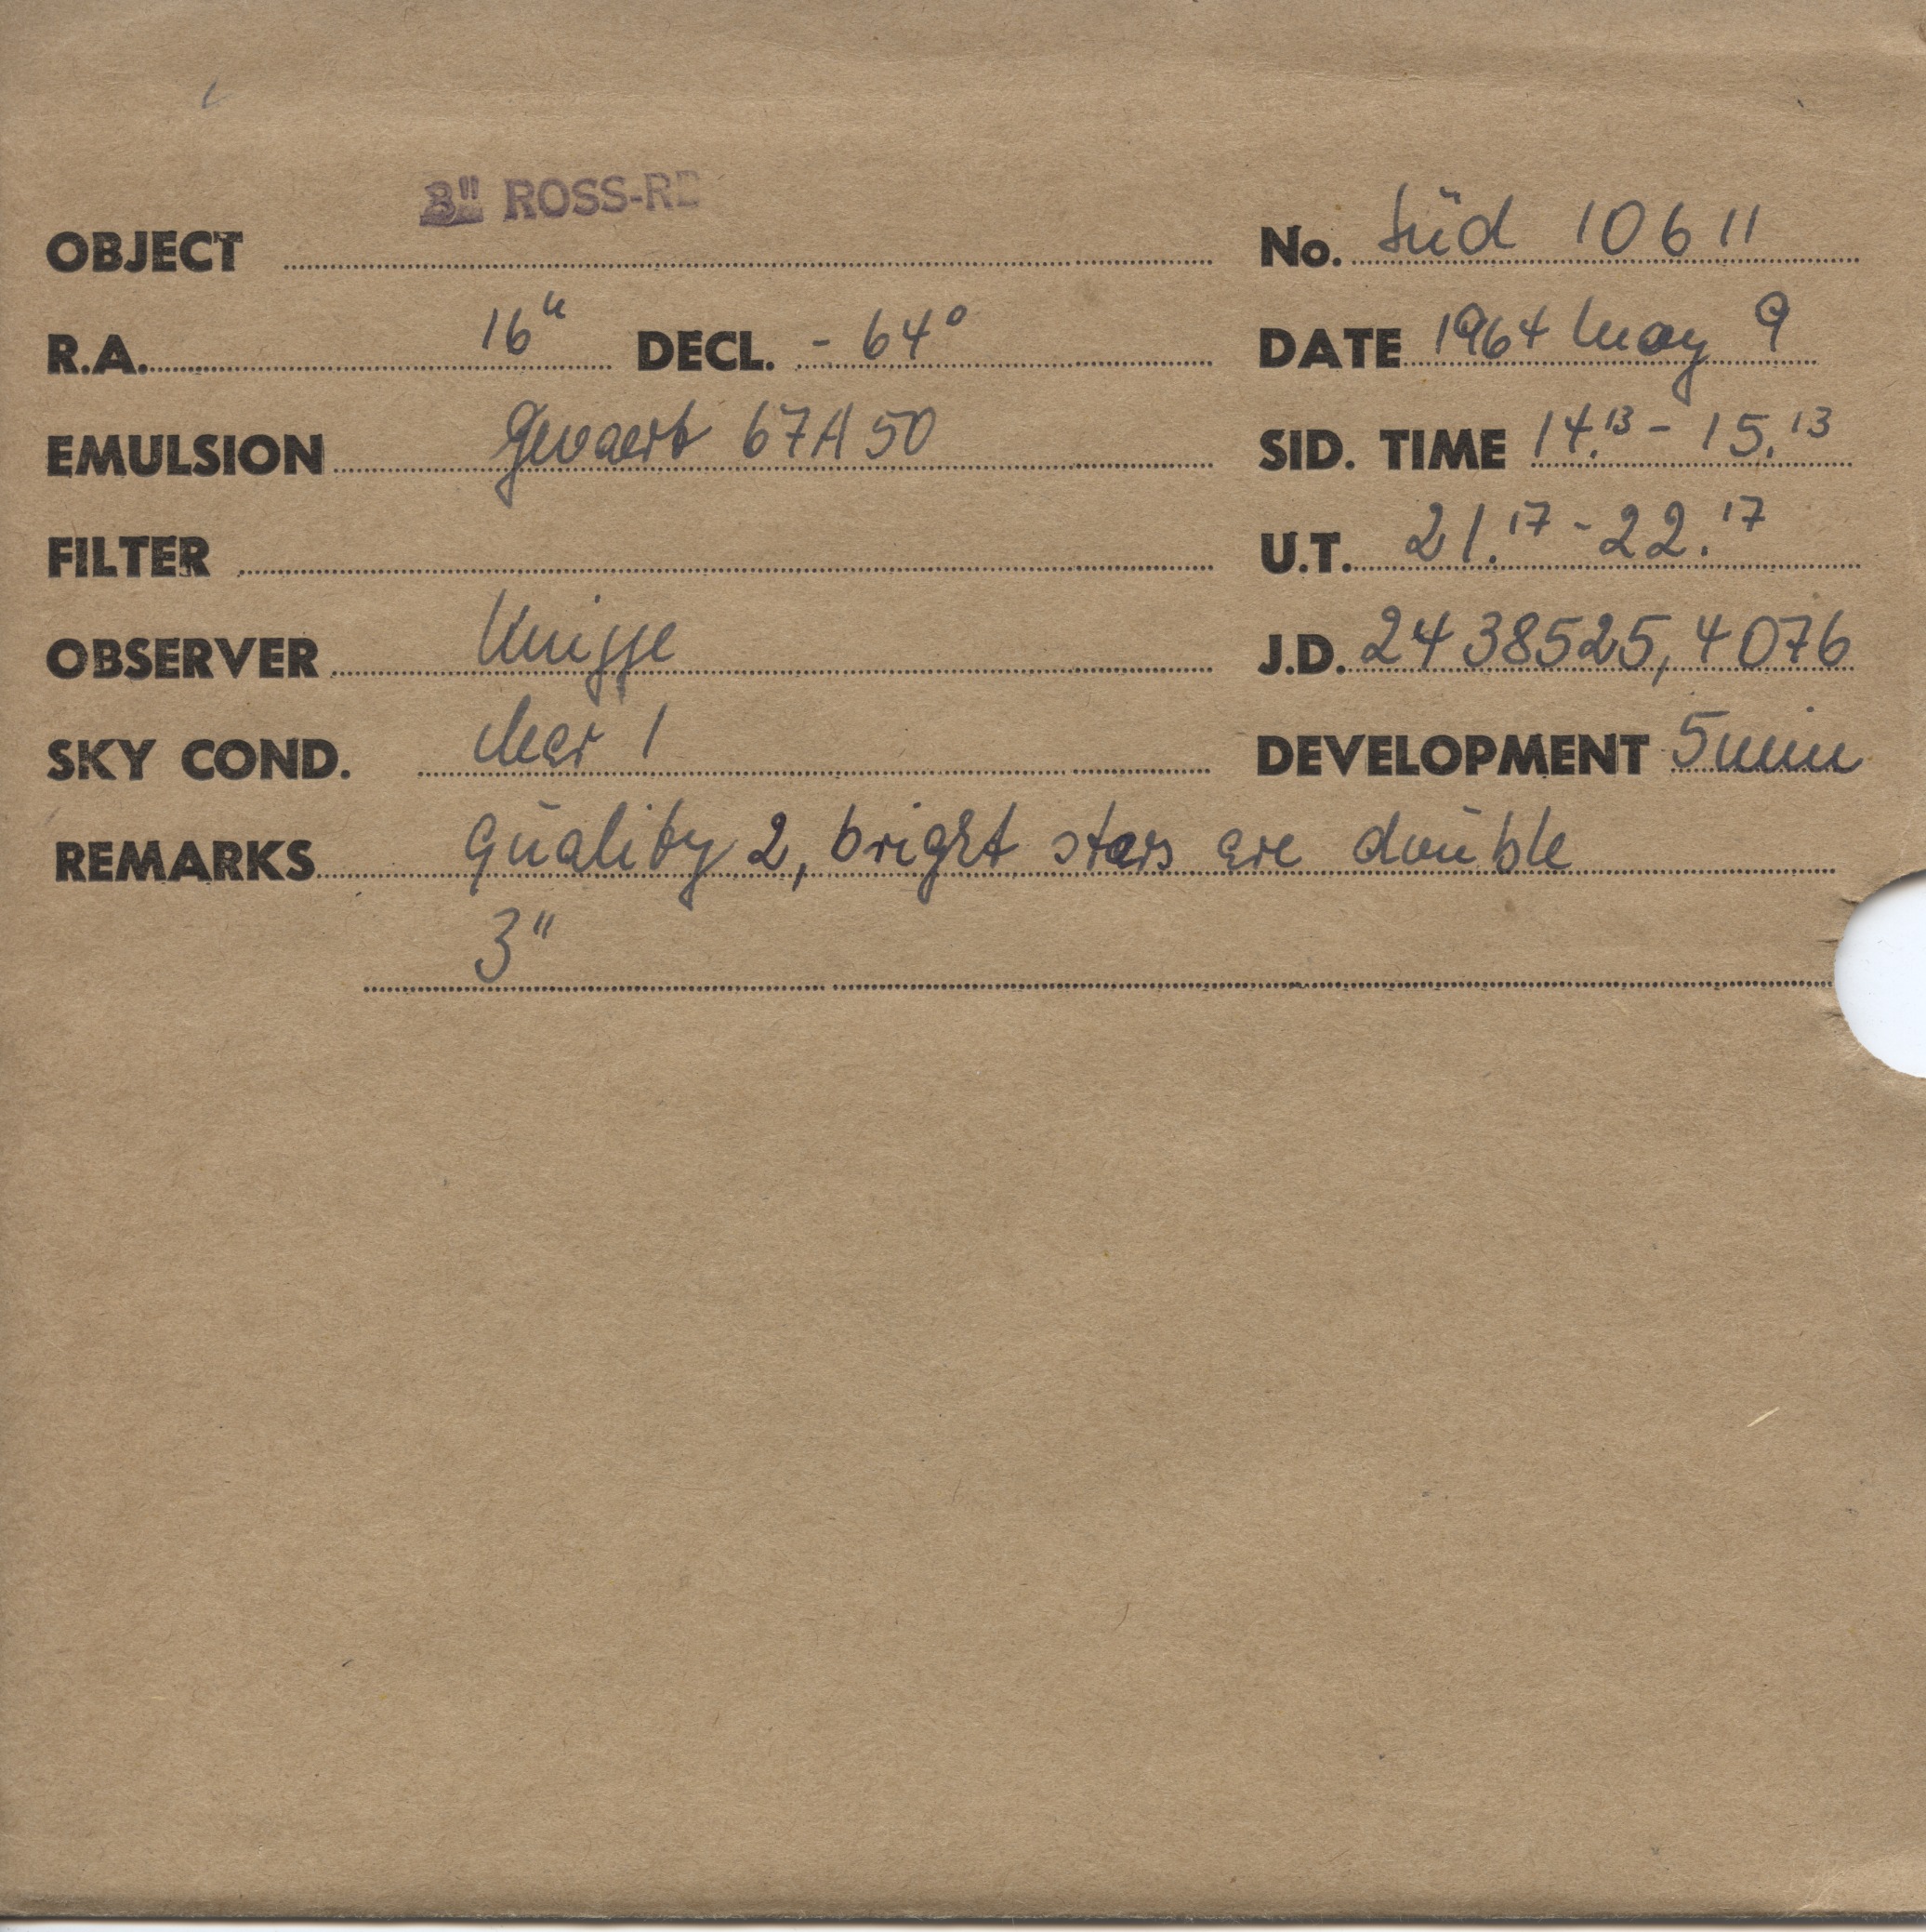 3" ROSS-RE
OBJECT No. Süd 10611
R.A. 16ʰ DECL. - 64° DATE 1964 May 9
EMULSION Gevaert 67A50 SID. TIME 14.¹³ - 15.¹³
FILTER U.T. 21.¹⁷ - 22.¹⁷
OBSERVER Knigge J.D. 2438525,4076
SKY COND. clear 1 DEVELOPMENT 5 min
REMARKS quality 2, bright stars are double
3"